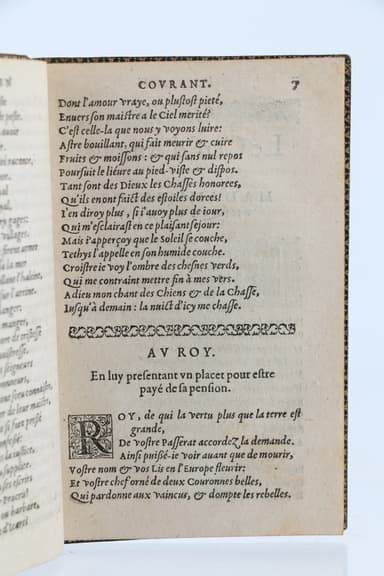 COVRANT. 7
Dont l'amour vraye, ou plustost pieté,
Enuers son maistre a le Ciel merité?
C'est celle-la que nous y voyons luire:
Astre bouillant, qui fait meurir & cuire
Fruits & moissons: & qui sans nul repos
Poursuit le liéure au pied-viste & dispos.
Tant sont des Dieux les Chasses honorees,
Qu'ils en ont faict des estoiles dorees!
I'en diroy plus, si i'auoy plus de iour,
Qui m'esclairast en ce plaisant sejour:
Mais i'apperçoy que le Soleil se couche,
Tethys l'appelle en son humide couche.
Croistre ie voy l'ombre des chesnes verds,
Qui me contraint mettre fin à mes vers.
Adieu mon chant des Chiens & de la Chasse,
Iusqu'à demain: la nuict d'icy me chasse.
AV ROY.
En luy presentant vn placet pour estre
payé de sa pension.
ROY, de qui la vertu plus que la terre est
grande,
De vostre Passerat accordez la demande.
Ainsi puißé-ie voir auant que de mourir,
Vostre nom & vos Lis en l'Europe fleurir:
Et vostre chef orné de deux Couronnes belles,
Qui pardonne aux vaincus, & dompte les rebelles.